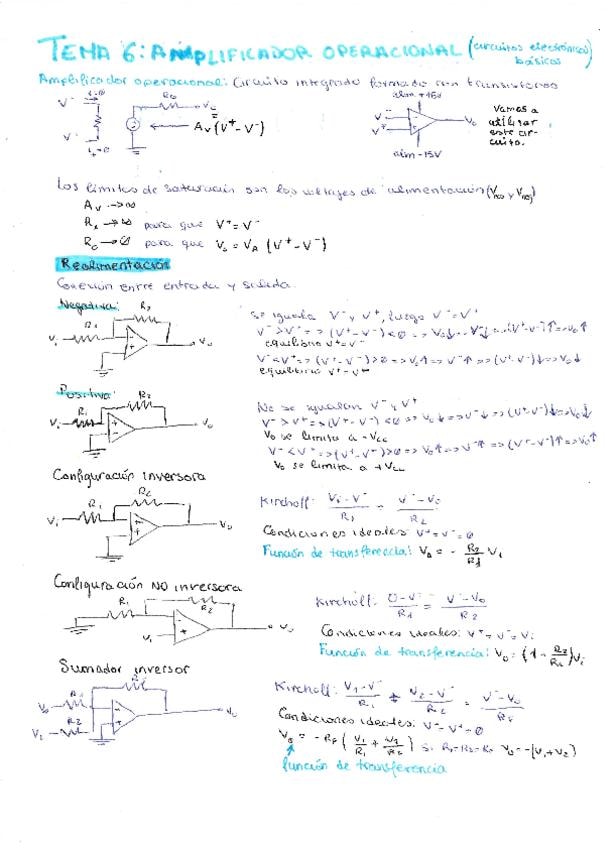 TEMA 6: AMPLIFICADOR OPERACIONAL (circuitos electrónicos básicos)
Amplificador operacional: Circuito integrado formado con transistores
V⁻ R₀ V₀
= Aᵥ(V⁺-V⁻)
alim +15V
V⁻ V⁺ V₀
alim -15V
Vamos a utilizar este circuito.
Los límites de saturación son los voltajes de alimentación
Aᵥ → ∞
→ ∞ para que V⁺=V⁻
R₀ → 0 para que (V⁺-V⁻)
Realimentación
Conexión entre entrada y salida.
Negativa: R₂
R₁ Vᵢ V₀
Se iguala V⁻ y V⁺, luego V⁻=V⁺
V⁻>V⁺ => (V⁺-V⁻)<0 => V₀↓ => V⁻↓ => (V⁺-V⁻)↑ => V₀↑
equilibrio V⁺=V⁻
V⁻<V⁺ => (V⁺-V⁻)>0 => V₀↑ => V⁻↑ => (V⁺-V⁻)↓ => V₀↓
equilibrio V⁺=V⁻
Positiva: R₂
R₁ Vᵢ V₀
No se igualan V⁻ y V⁺
V⁻>V⁺ => (V⁺-V⁻)<0 => V₀↓ => V⁺↓ => (V⁺-V⁻)↓ => V₀↓
V₀ se limita a -Vcc
V⁻<V⁺ => (V⁺-V⁻)>0 => V₀↑ => V⁺↑ => (V⁺-V⁻)↑ => V₀↑
V₀ se limita a +Vcc
Configuración inversora
R₂
R₁ Vᵢ V₀
Kirchoff: (Vᵢ-V⁻)/R₁ = (V⁻-V₀)/R₂
Condiciones ideales V⁺=V⁻=0
Función de transferecia: V₀ = - R₂/R₁ Vᵢ
Configuración NO inversora
R₁ R₂
Vᵢ V₀
Kirchoff: (0-V⁻)/R₁ = (V⁻-V₀)/R₂
Condiciones ideales: V⁺=V⁻=Vᵢ
Función de transferencia:
Sumador inversor
R₁
R₂ V₂ V₀
Kirchoff: (V₁-V⁻)/R₁ + (V₂-V⁻)/R₂ = (V⁻-V₀)/RF
Condiciones ideales: V⁻=V⁺=0
V₀ = -RF (V₁/R₁ + V₂/R₂) Si R₁=R₂=RF V₀=-(V₁+V₂)
función de transferencia